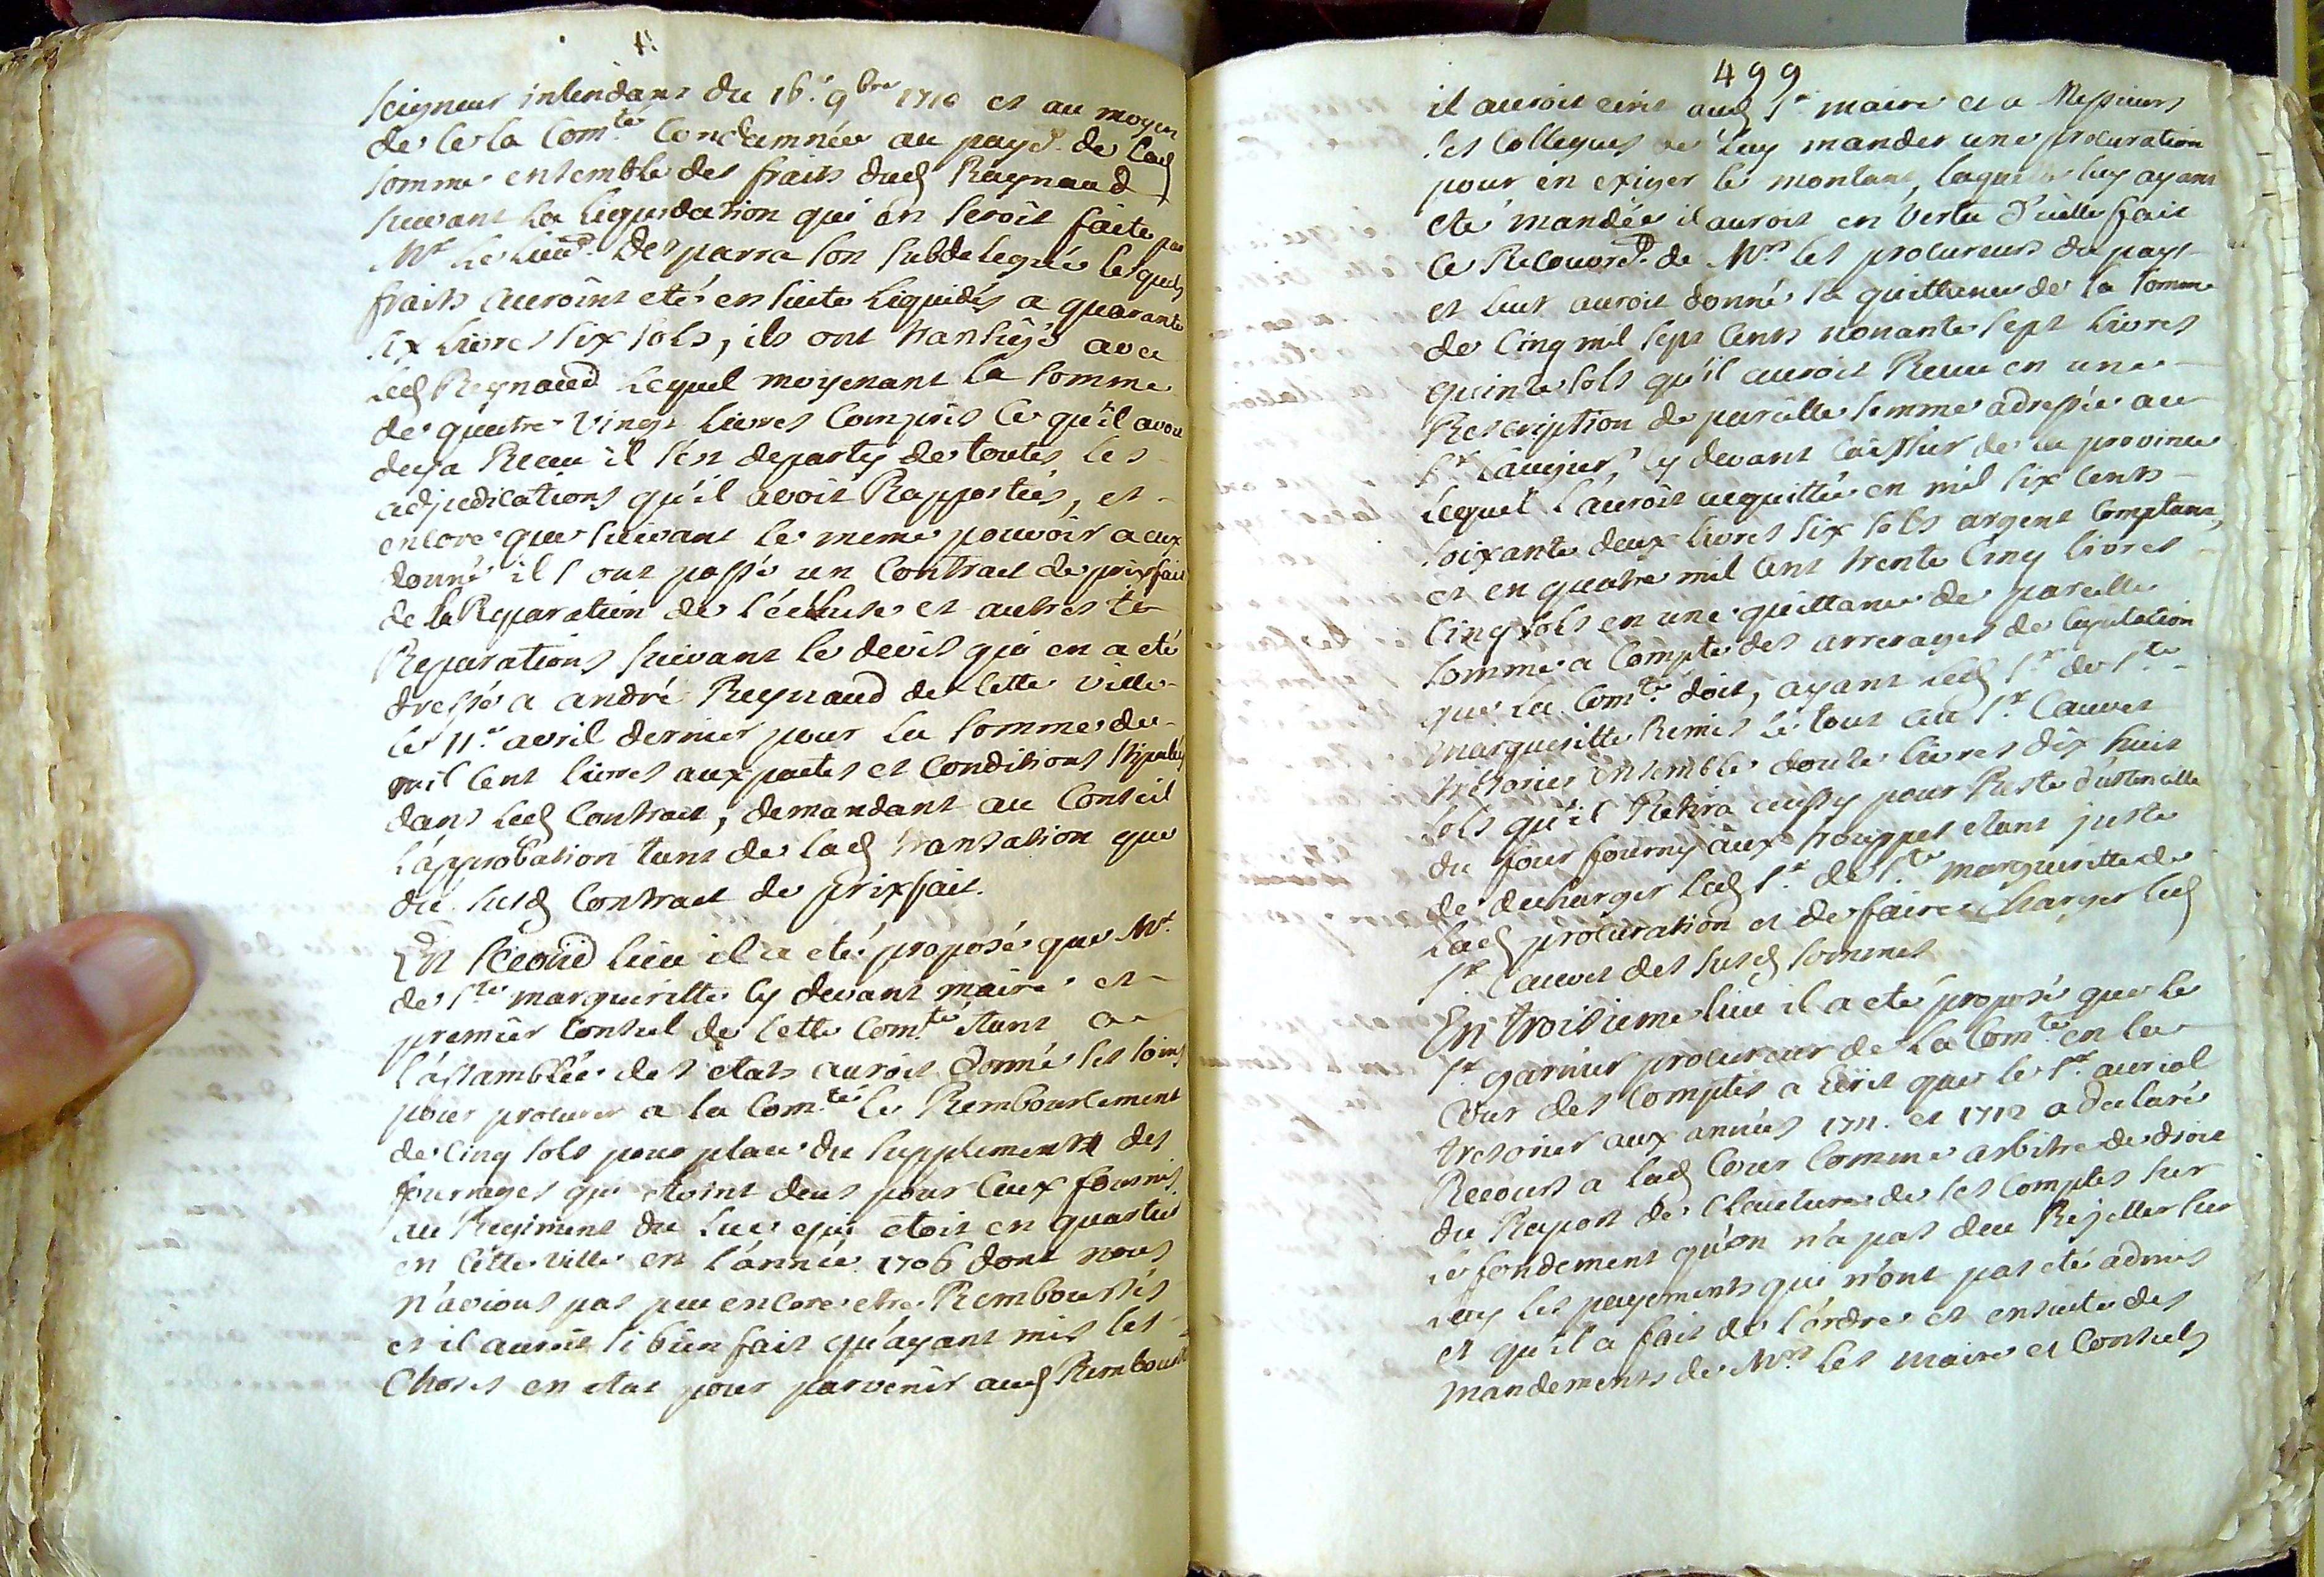 seigneur intendant du 16.e 9bre 1716 et au moyen
de ce la Comte Condamnée au payt. de lad
somme ensemble des fraits dud Raynaud
suivant la liquidation qui en seroit faite par
Mr le lieut. Desparra son subdelegué lesquels
fraits auroint eté ensuite liquidés a quarante
six livres six sols, ils ont transigé avec
led Reynaud lequel moyenant la somme
de quatre vingt livres Compris ce qu'il avoit
deya Receu il s'en departy de toutes les
adjudications qu'il avoit Rapportées, et
encore que suivant le meme pouvoir a eux
donné ils ont passé un Contract de prixfait
de la Reparation de l'écluse et autres
Reparations suivant le devis qui en a eté
dressé a andré Reynaud de cette ville
le 11.e avril dernier pour la somme de
mil cent livres aux pactes et Conditions stipulés
dans led Contract, demandant au Conseil
l'approbation tant de lad transation que
du susd Contract de prixfait.
En second lieu il a eté proposé que Mr.
de Ste margueritte cy devant maire et
premier Consul de cette Comté étant a
l'assamblée des états auroit donné ses soins
pour procurer a la Comté le Remboursement
de cinq sols pour place du supplement des
fourrages qui etoint deus pour ceux fournis
au Regiment du Luc qui etoit en quartier
en cette ville en l'année 1706 dont nous
n'avions pas peu encore etre Remboursés
et il auroit si bien fait qu'ayant mis les
Choses en etat pour parvenir aud Rembourst
499
il auroit écrit aud Sr maire et a Messieurs
ses Collegues de luy mander une procuration
pour en exiger le montant, laquelle luy ayant
eté mandée il auroit en vertu d'icelle fait
le Recouvrt. de Mrs les procureurs du pays
et leur auroit donné sa quittance de la somme
de cinq mil sept cents nonante sept livres
quinze sols qu'il auroit Receu en une
Rescription de pareille somme adressée au
Sr Laugier, cy devant Caissier de la province
lequel l'auroit acquittée en mil six cents
soixante deux livres six sols argent Comptant,
et en quatre mil cent trente cinq livres
cinq sols en une quittance de pareille
somme a Compte des arrerages de Capitation
que la Comté doit, ayant led Sr de Ste
margueritte Remis le tout au Sr. Cauvet
trésorier ensemble douze livres dix huit
sols qu'il Retira aussy pour Reste d'ustencille
du four fourny aux trouppes etant juste
de decharger led Sr. de Ste margueritte de
lad procuration et de faire Charger led
Sr. Cauvet des susd sommes
En troisieme lieu il a eté proposé que le
Sr. garnier procureur de la Comté en la
Cour des Comptes a Ecrit que le Sr. auriol
tresorier aux années 1711. et 1712 a declaré
Recours a lad Cour Comme arbitre de droit
du Raport de Clauture de ses Comptes sur
le fondement qu'on n'a pas deu Rejetter sur
luy les payements qui n'ont pas eté admis
et qu'il a fait de l'ordre et ensuite des
mandements de Mrs les maire et Consuls